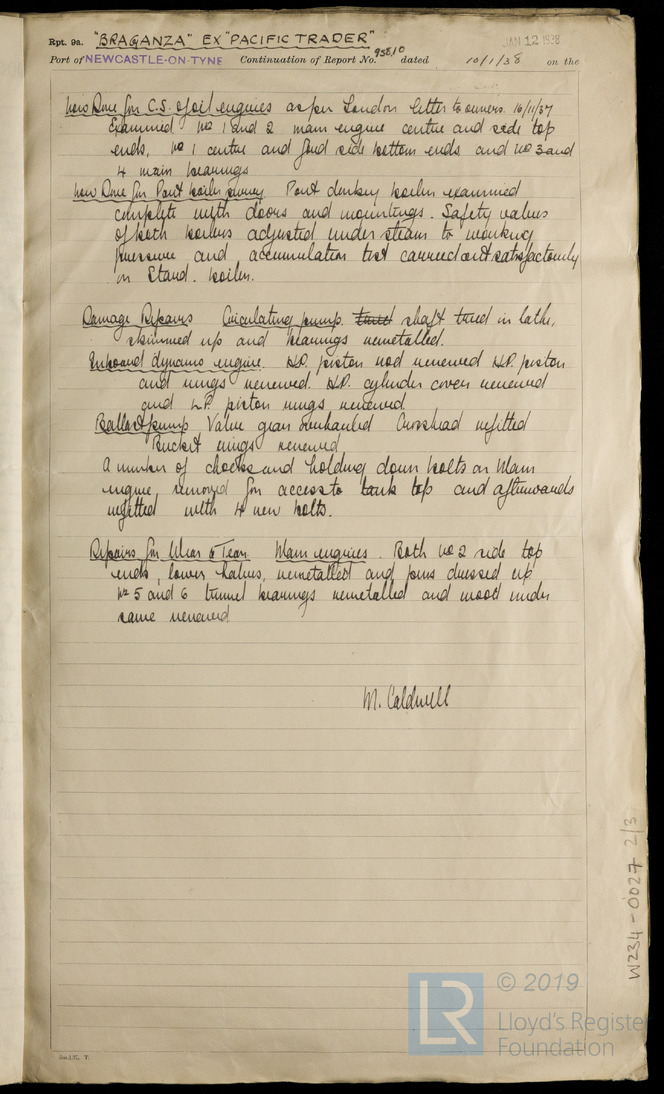 Rpt. 9a. "BRAGANZA" EX "PACIFIC TRADER" JAN 12 1938
Port of NEWCASTLE-ON-TYNE Continuation of Report No. 95810 dated 10/1/38 on the
Now Done for C.S. of oil engines as per London letter to owners 16/11/37
Examined No 1 and 2 main engine centre and side top
ends, No 1 centre and fwd side bottom ends and No 3 and
4 main bearings
Now Done for Part boiler survey Port donkey boiler examined
complete with doors and mountings. Safety valves
of both boilers adjusted under steam to working
pressure and accumulation test carried out satisfactorily
on Stard. boiler.
Damage Repairs Circulating pump. shaft trued in lathe,
skimmed up and bearings remetalled.
Inboard dynamo engine. H.P. piston rod renewed H.P. piston
and rings renewed. H.P. cylinder cover renewed
and L.P. piston rings renewed
Ballast pump Valve gear overhauled Crosshead refitted
Bucket rings renewed
A number of chocks and holding down bolts on Main
engine, removed for access to tank top and afterwards
refitted with 4 new bolts.
Repairs for Wear & Tear Main engines. Both No 2 side top
ends, lower halves, remetalled and pins dressed up
No 5 and 6 tunnel bearings remetalled and wood under
same renewed
M. Caldwell
W234-0027 2/3
LR © 2019
Lloyd's Register
Foundation